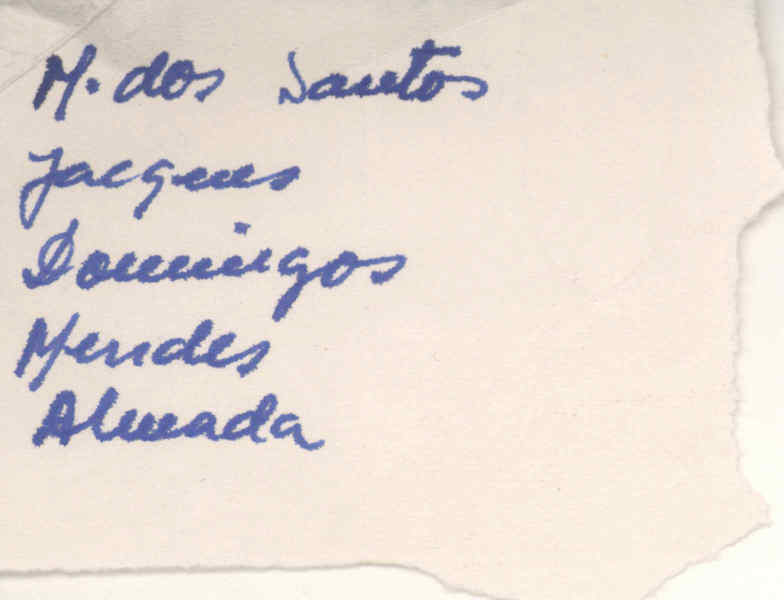 M. dos Santos
Jacques
Domingos
Mendes
Almada